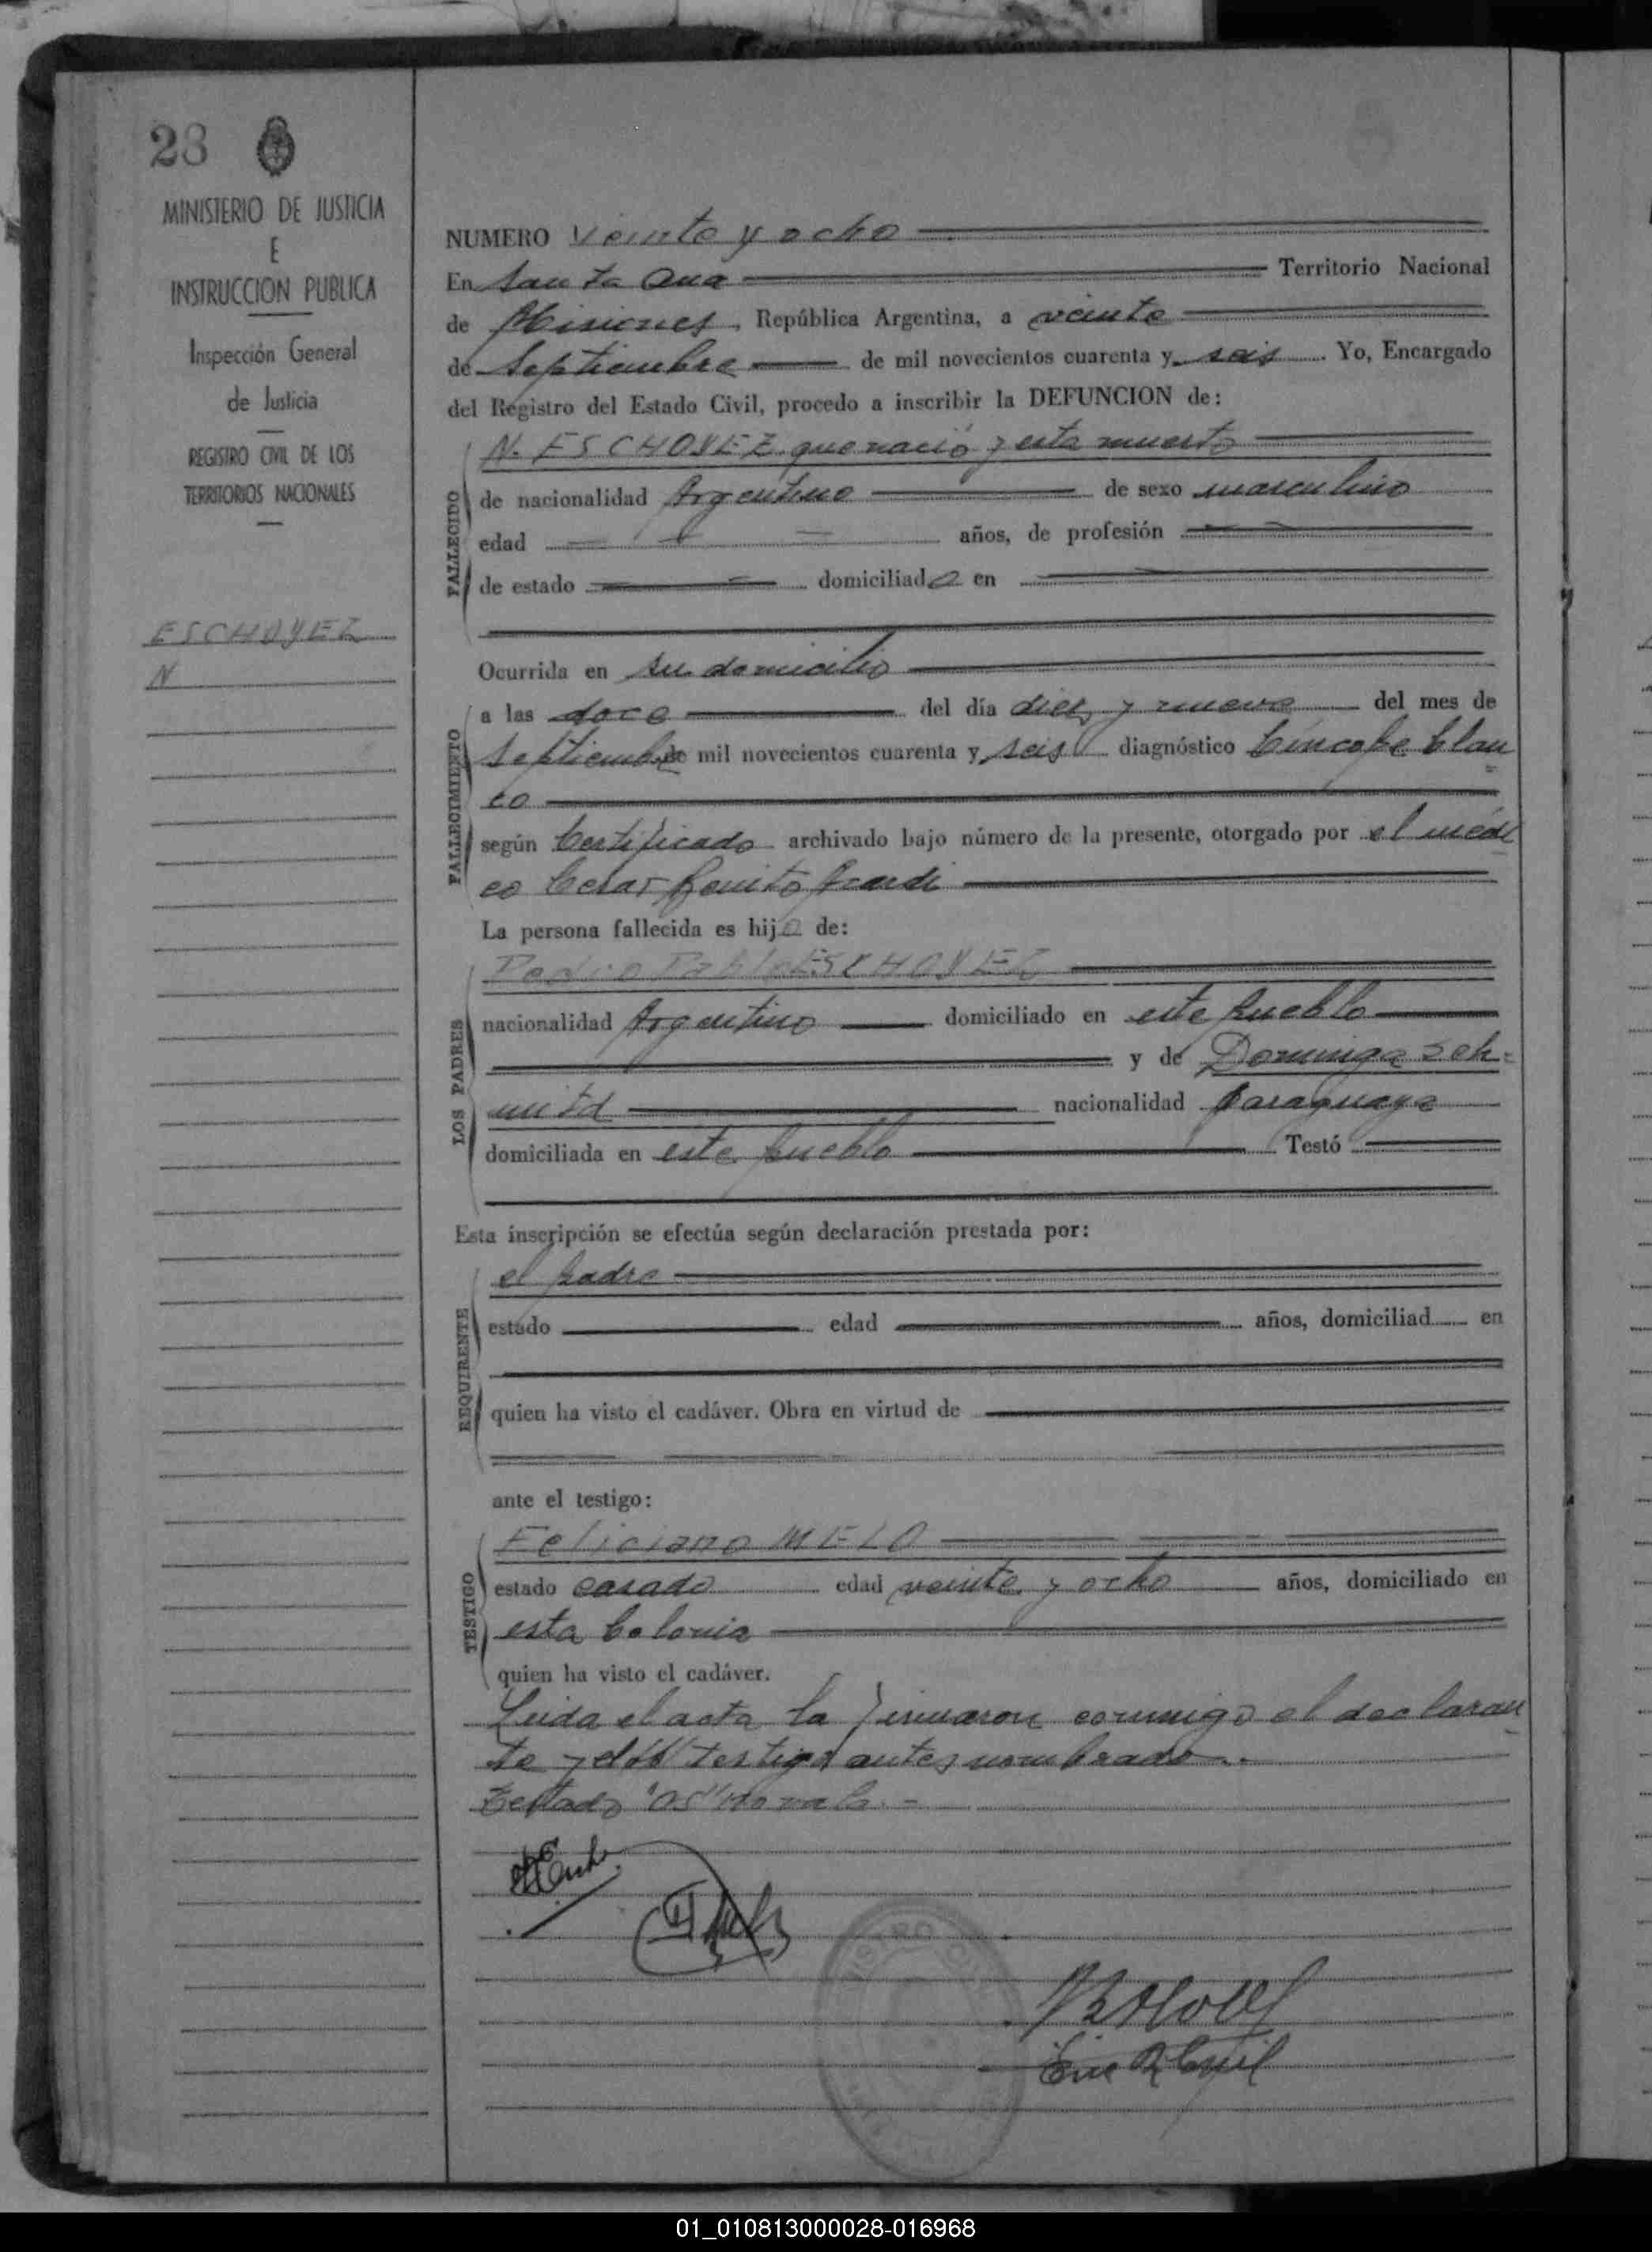 28
MINISTERIO DE JUSTICIA
E
INSTRUCCION PUBLICA
Inspección General
de Justicia
REGISTRO CIVIL DE LOS
TERRITORIOS NACIONALES
ESCHOYEZ
N
NUMERO Veinte y ocho
En Santa Ana Territorio Nacional
de Misiones, República Argentina, a veinte
de Septiembre de mil novecientos cuarenta y seis Yo, Encargado
del Registro del Estado Civil, procedo a inscribir la DEFUNCION de:
FALLECIDO
N. ESCHOYEZ que nació y esta muerto
de nacionalidad Argentino de sexo masculino
edad años, de profesión
de estado domiciliado en
Ocurrida en su domicilio
FALLECIMIENTO
a las doce del día diez y nueve del mes de
Septiembre de mil novecientos cuarenta y seis diagnóstico Cíncope blan
co
según Certificado archivado bajo número de la presente, otorgado por el médi
co Cesar Benito
La persona fallecida es hijo de:
LOS PADRES
Pedro Pablo ESCHOYEZ
nacionalidad Argentino domiciliado en este pueblo
y de Dominga Sch-
mitd nacionalidad paraguaya
domiciliada en este pueblo Testó
Esta inscripción se efectúa según declaración prestada por:
REQUIRENTE
el padre
estado edad años, domiciliad en
quien ha visto el cadáver. Obra en virtud de
ante el testigo:
TESTIGO
Feliciano MELO
estado casado edad veinte y ocho años, domiciliado en
esta Colonia
quien ha visto el cadáver.
Leida el acta la firmaron conmigo el declaran
te y el testigo antes nombrado.
Testado "os" no vale.-
01_010813000028-016968